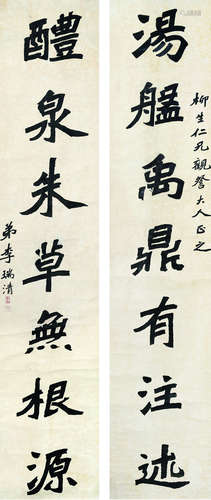 柳生仁兄觀詧大人正之
湯盤禹鼎有注述
醴泉朱草無根源
弟李瑞清